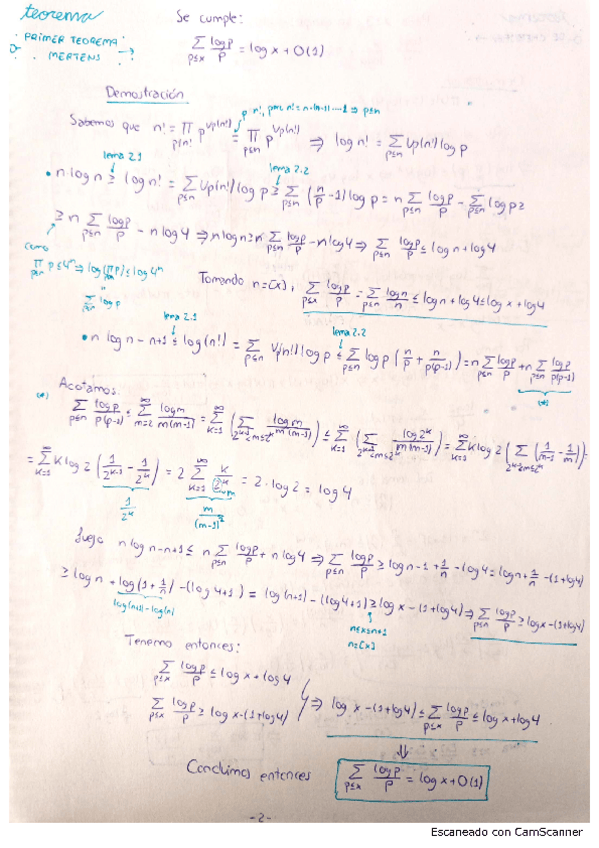 teorema
Se cumple:
PRIMER TEOREMA
MERTENS
∑_{p≤x} log p/p = log x + O(1)
Demostración
p|n!, p|n! = n·(n-1)····1 ⇒ p≤n
Sabemos que n! = ∏_{p|n!} p^{Vp(n!)} = ∏_{p≤n} p^{Vp(n!)} ⇒ log n! = ∑_{p≤n} Vp(n!) log p
lema 2.1 lema 2.2
• n·log n ≥ log n! = ∑_{p≤n} Vp(n!) log p ≥ ∑_{p≤n} (n/p - 1) log p = n ∑_{p≤n} log p/p - ∑_{p≤n} log p ≥
≥ n ∑_{p≤n} log p/p - n log 4 ⇒ n log n ≥ n ∑_{p≤n} log p/p - n log 4 ⇒ ∑_{p≤n} log p/p ≤ log n + log 4
Como
∏_{p≤n} p ≤ 4^n ⇒ log(∏_{p≤n} p) ≤ log 4^n
∑_{p≤n} log p
Tomando n=[x], ∑_{p≤x} log p/p = ∑_{p≤n} log n/n ≤ log n + log 4 ≤ log x + log 4
lema 2.1 lema 2.2
• n log n - n + 1 ≤ log(n!) = ∑_{p≤n} Vp(n!) log p ≤ ∑_{p≤n} log p (n/p + n/p(p-1)) = n ∑_{p≤n} log p/p + n ∑_{p≤n} log p/p(p-1)
(*)
(*) Acotamos:
∑_{p≤n} log p/p(p-1) ≤ ∑_{m=2}^{∞} log m/m(m-1) = ∑_{k=1}^{∞} (∑_{2^{k-1}<m≤2^k} log m/m(m-1)) ≤ ∑_{k=1}^{∞} (∑_{2^{k-1}<m≤2^k} log 2^k/m(m-1)) = ∑_{k=1}^{∞} k log 2 (∑_{2^{k-1}<m≤2^k} (1/m-1 - 1/m)) =
= ∑_{k=1}^{∞} k log 2 (1/2^{k-1} - 1/2^k) = 2 ∑_{k=1}^{∞} k/2^k = 2·log 2 = log 4
1/2^k m/(m-1)^2
luego n log n - n + 1 ≤ n ∑_{p≤n} log p/p + n log 4 ⇒ ∑_{p≤n} log p/p ≥ log n - 1 + 1/n - log 4 = log n + 1/n - (1+log 4)
≥ log n + log(1 + 1/n) - (log 4 + 1) = log(n+1) - (log 4 + 1) ≥ log x - (1+log 4) ⇒ ∑_{p≤n} log p/p ≥ log x - (1+log 4)
log(n+1) - log(n) n≤x≤n+1
n=[x]
Tenemo entonces:
∑_{p≤x} log p/p ≤ log x + log 4
∑_{p≤x} log p/p ≥ log x - (1+log 4) ⇒ log x - (1+log 4) ≤ ∑_{p≤x} log p/p ≤ log x + log 4
⇓
Concluimos entonces ∑_{p≤x} log p/p = log x + O(1)
-2-
Escaneado con CamScanner